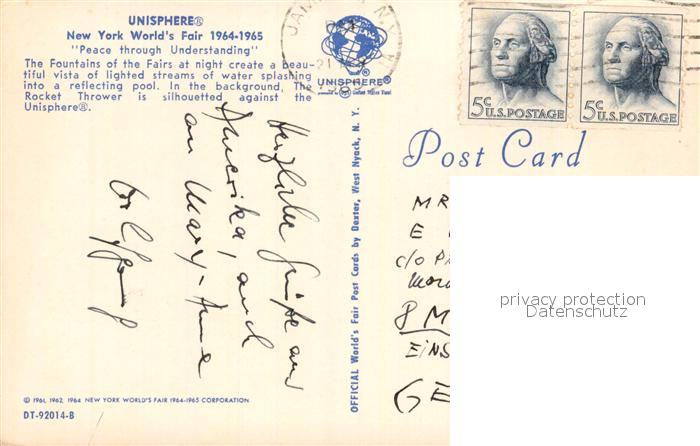 UNISPHERE®
New York World's Fair 1964-1965
"Peace through Understanding"
The Fountains of the Fairs at night create a beau-
tiful vista of lighted streams of water splashing
into a reflecting pool. In the background, The
Rocket Thrower is silhouetted against the
Unisphere®.
Herzliche Grüße aus
Amerika, auch
an Mary-Anne
© 1961, 1962, 1964 NEW YORK WORLD'S FAIR 1964-1965 CORPORATION
DT-92014-B
UNISPHERE®
OFFICIAL World's Fair Post Cards by Dexter, West Nyack, N. Y.
JAM N.Y.
5c U.S. POSTAGE
5c U.S. POSTAGE
Post Card
MR
E
c/o P
8 M
EINS
GE
privacy protection
Datenschutz